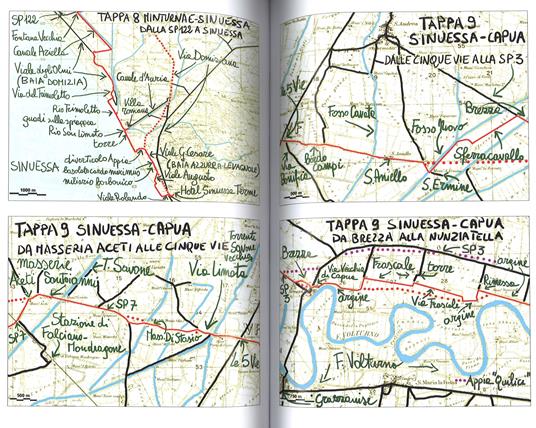 TAPPA 8 MINTURNAE-SINUESSA
DALLA SP122 A SINUESSA
SP 122
Fontana Vecchia
Canale Aziella
Viale degli Olmi
(BAIA DOMIZIA)
Via del Trimoletto
Rio Trimoletto
guadi sulla spiaggia
Rio San Limato
torre
SINUESSA
diverticolo Appia
basolato cardo maximus
militizio borbonico
Viale Rolando
Canale d'Auria
Villa
romana
Via Domiziana
Viale G. Cesare
(BAIA AZZURRA-LEVAGNOLE)
Viale Augusto
Hotel Sinuessa Terme
1000 m
TAPPA 9
SINUESSA-CAPUA
DALLE CINQUE VIE ALLA SP3
le 5 Vie
Fosso Cavato
Fosso Nuovo
Brezza
Sferracavallo
Bordo
campi
S. Aniello
S. Ermine
500 m
TAPPA 9 SINUESSA-CAPUA
DA MASSERIA ACETI ALLE CINQUE VIE
Masserie
Aceti
T. Savone
Torrente
Savone
Vecchio
Via Limata
SP7
SP7
Stazione di
Falciano-
Mondragone
Mass. Di Stasio
le 5 Vie
500 m
TAPPA 9 SINUESSA-CAPUA
DA BREZZA ALLA NUNZIATELLA
SP3
argine
Brezza
SP
3
Via Vecchia
di Capua
Frascale
torre
Rimessa
argine
argine
F. VOLTURNO
F. Volturno
Appia "Quilici"
Grazzanise